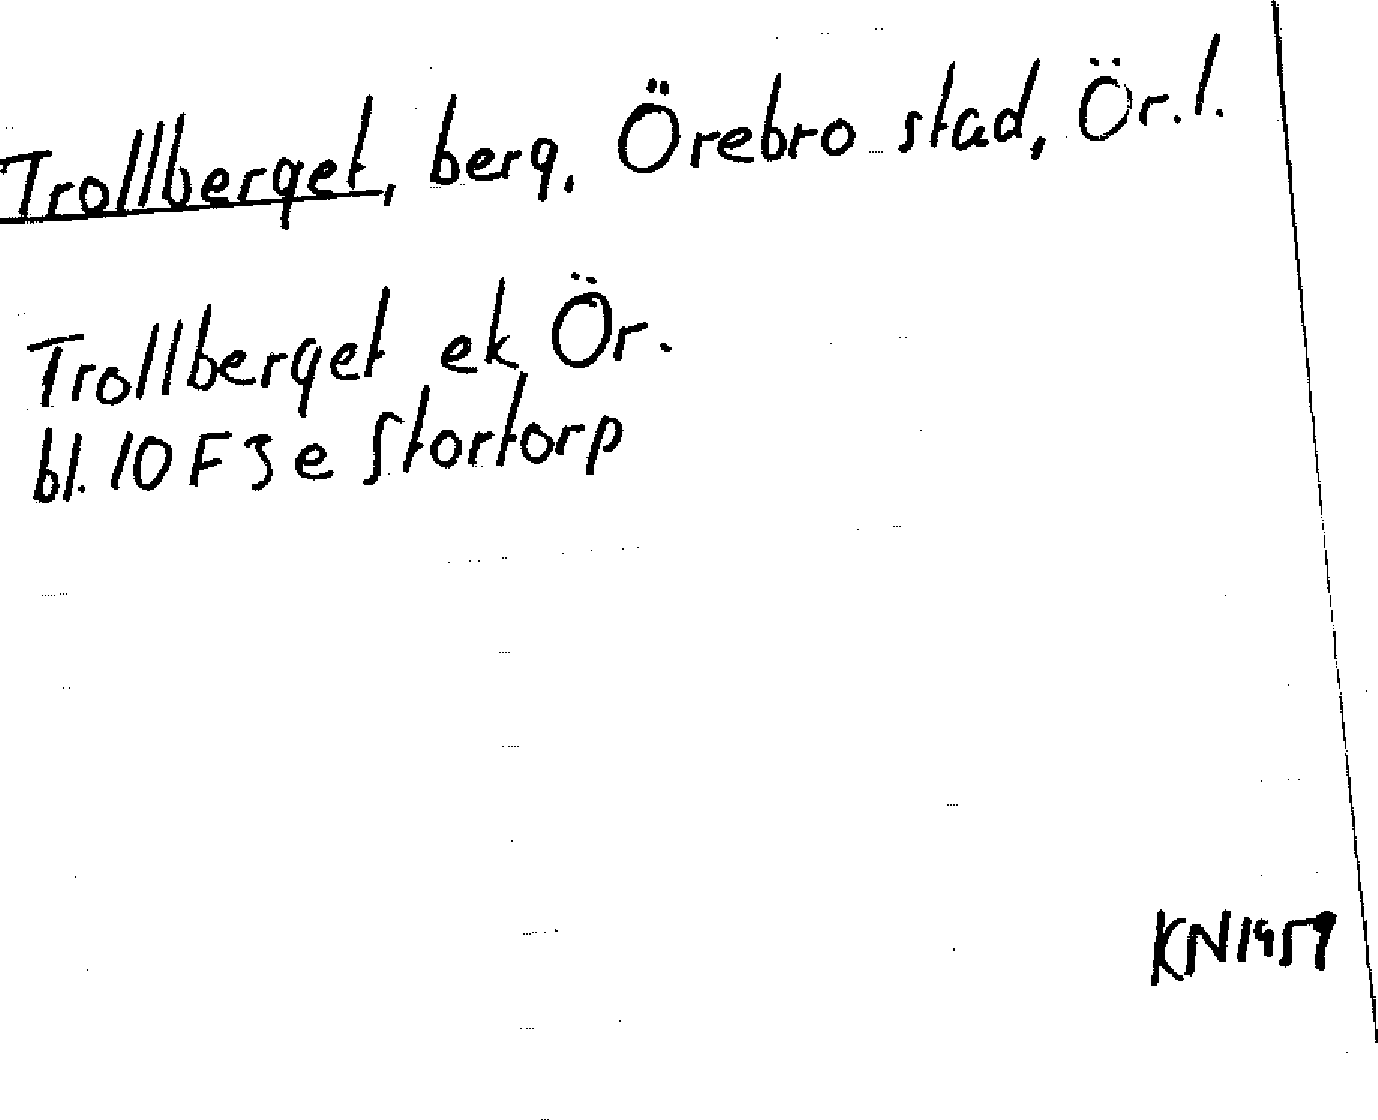 Trollberget, berg, Örebro stad, Ör. l.
Trollberget ek Ör.
bl. 10 F 3 e Stortorp
KN 1959